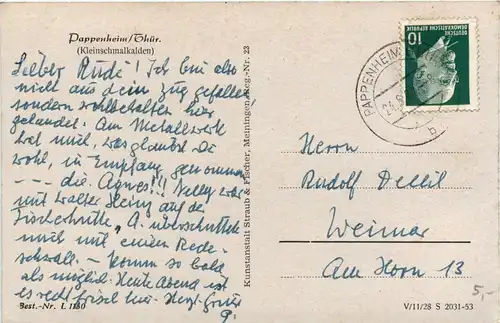 Pappenheim/Thür.
(Kleinschmalkalden)
Lieber Rudi! Ich bin also
nicht aus dem Zug gefallen
sondern wohlbehalten hier
gelandet. Am Metallwerk
hat mich, was glaubst Du
wohl, in Empfang genommen
--- die Agnes!!! Nelly war
mit Walter Heinz auf der
Fischerhütte, A. überschüttete
mich mit einem Rede-
schwall. - Komm so bald
als möglich. Heute Abend ist
es recht frisch hier. Herzl. Grüße
Best.-Nr. L 1180
Kunstanstalt Straub & Fischer, Meiningen, Reg.-Nr. 23
DEUTSCHE
DEMOKRATISCHE REPUBLIK
10
PAPPENHEIM
b
Herrn
Rudolf
Weimar
Am Horn 13
5,-
V/11/28 S 2031-53